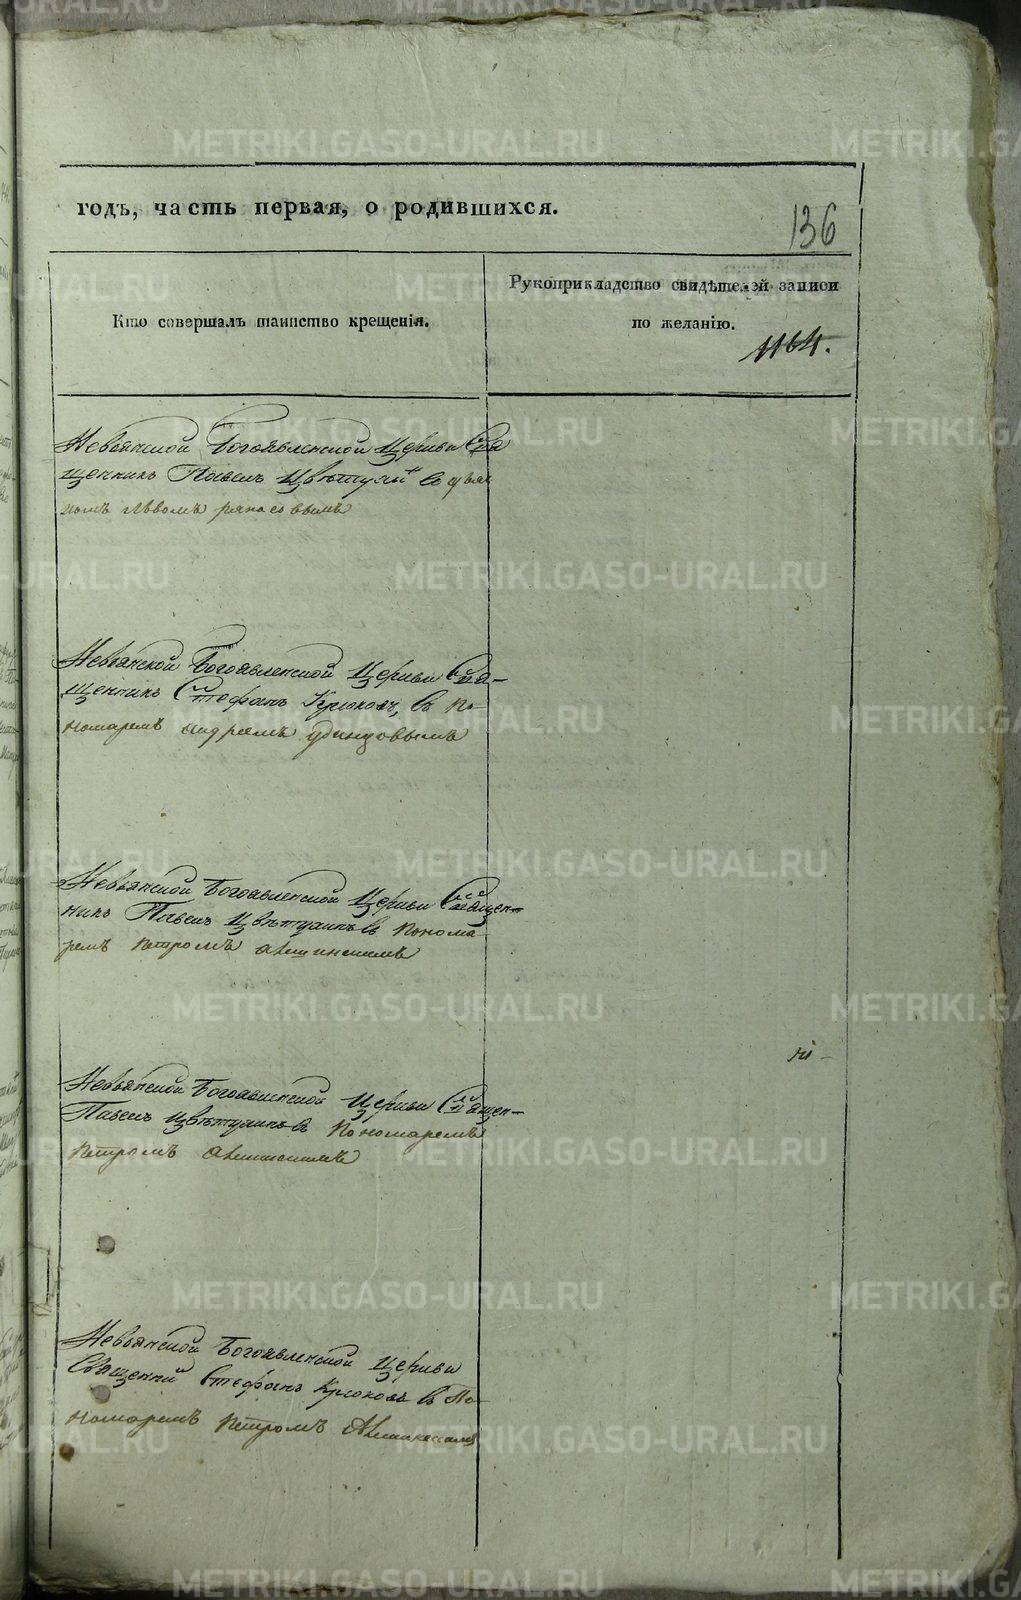 годъ, часть первая, о родившихся.
136
Кто совершалъ таинство крещенія.
Рукоприкладство свидѣтелей записи
по желанію.
1164.
Невьянской Богоявленской Церкви Свя
щенникъ Павелъ Цвѣту съ дьяч
комъ
Невьянской Богоявленской Церкви Свя-
щенникъ Стефанъ Крюковъ, съ По-
номаремъ Андреемъ Удинцовымъ
Невьянской Богоявленской Церкви Священ-
никъ Павелъ Цвѣтухинъ съ Понома
ремъ Петромъ
Невьянской Богоявленской Церкви Священ-
Павелъ Цвѣтухинъ съ Пономаремъ
Петромъ
Невьянской Богоявленской Церкви
Священник Стефанъ Крюковъ съ По-
номаремъ Петромъ
METRIKI.GASO-URAL.RU